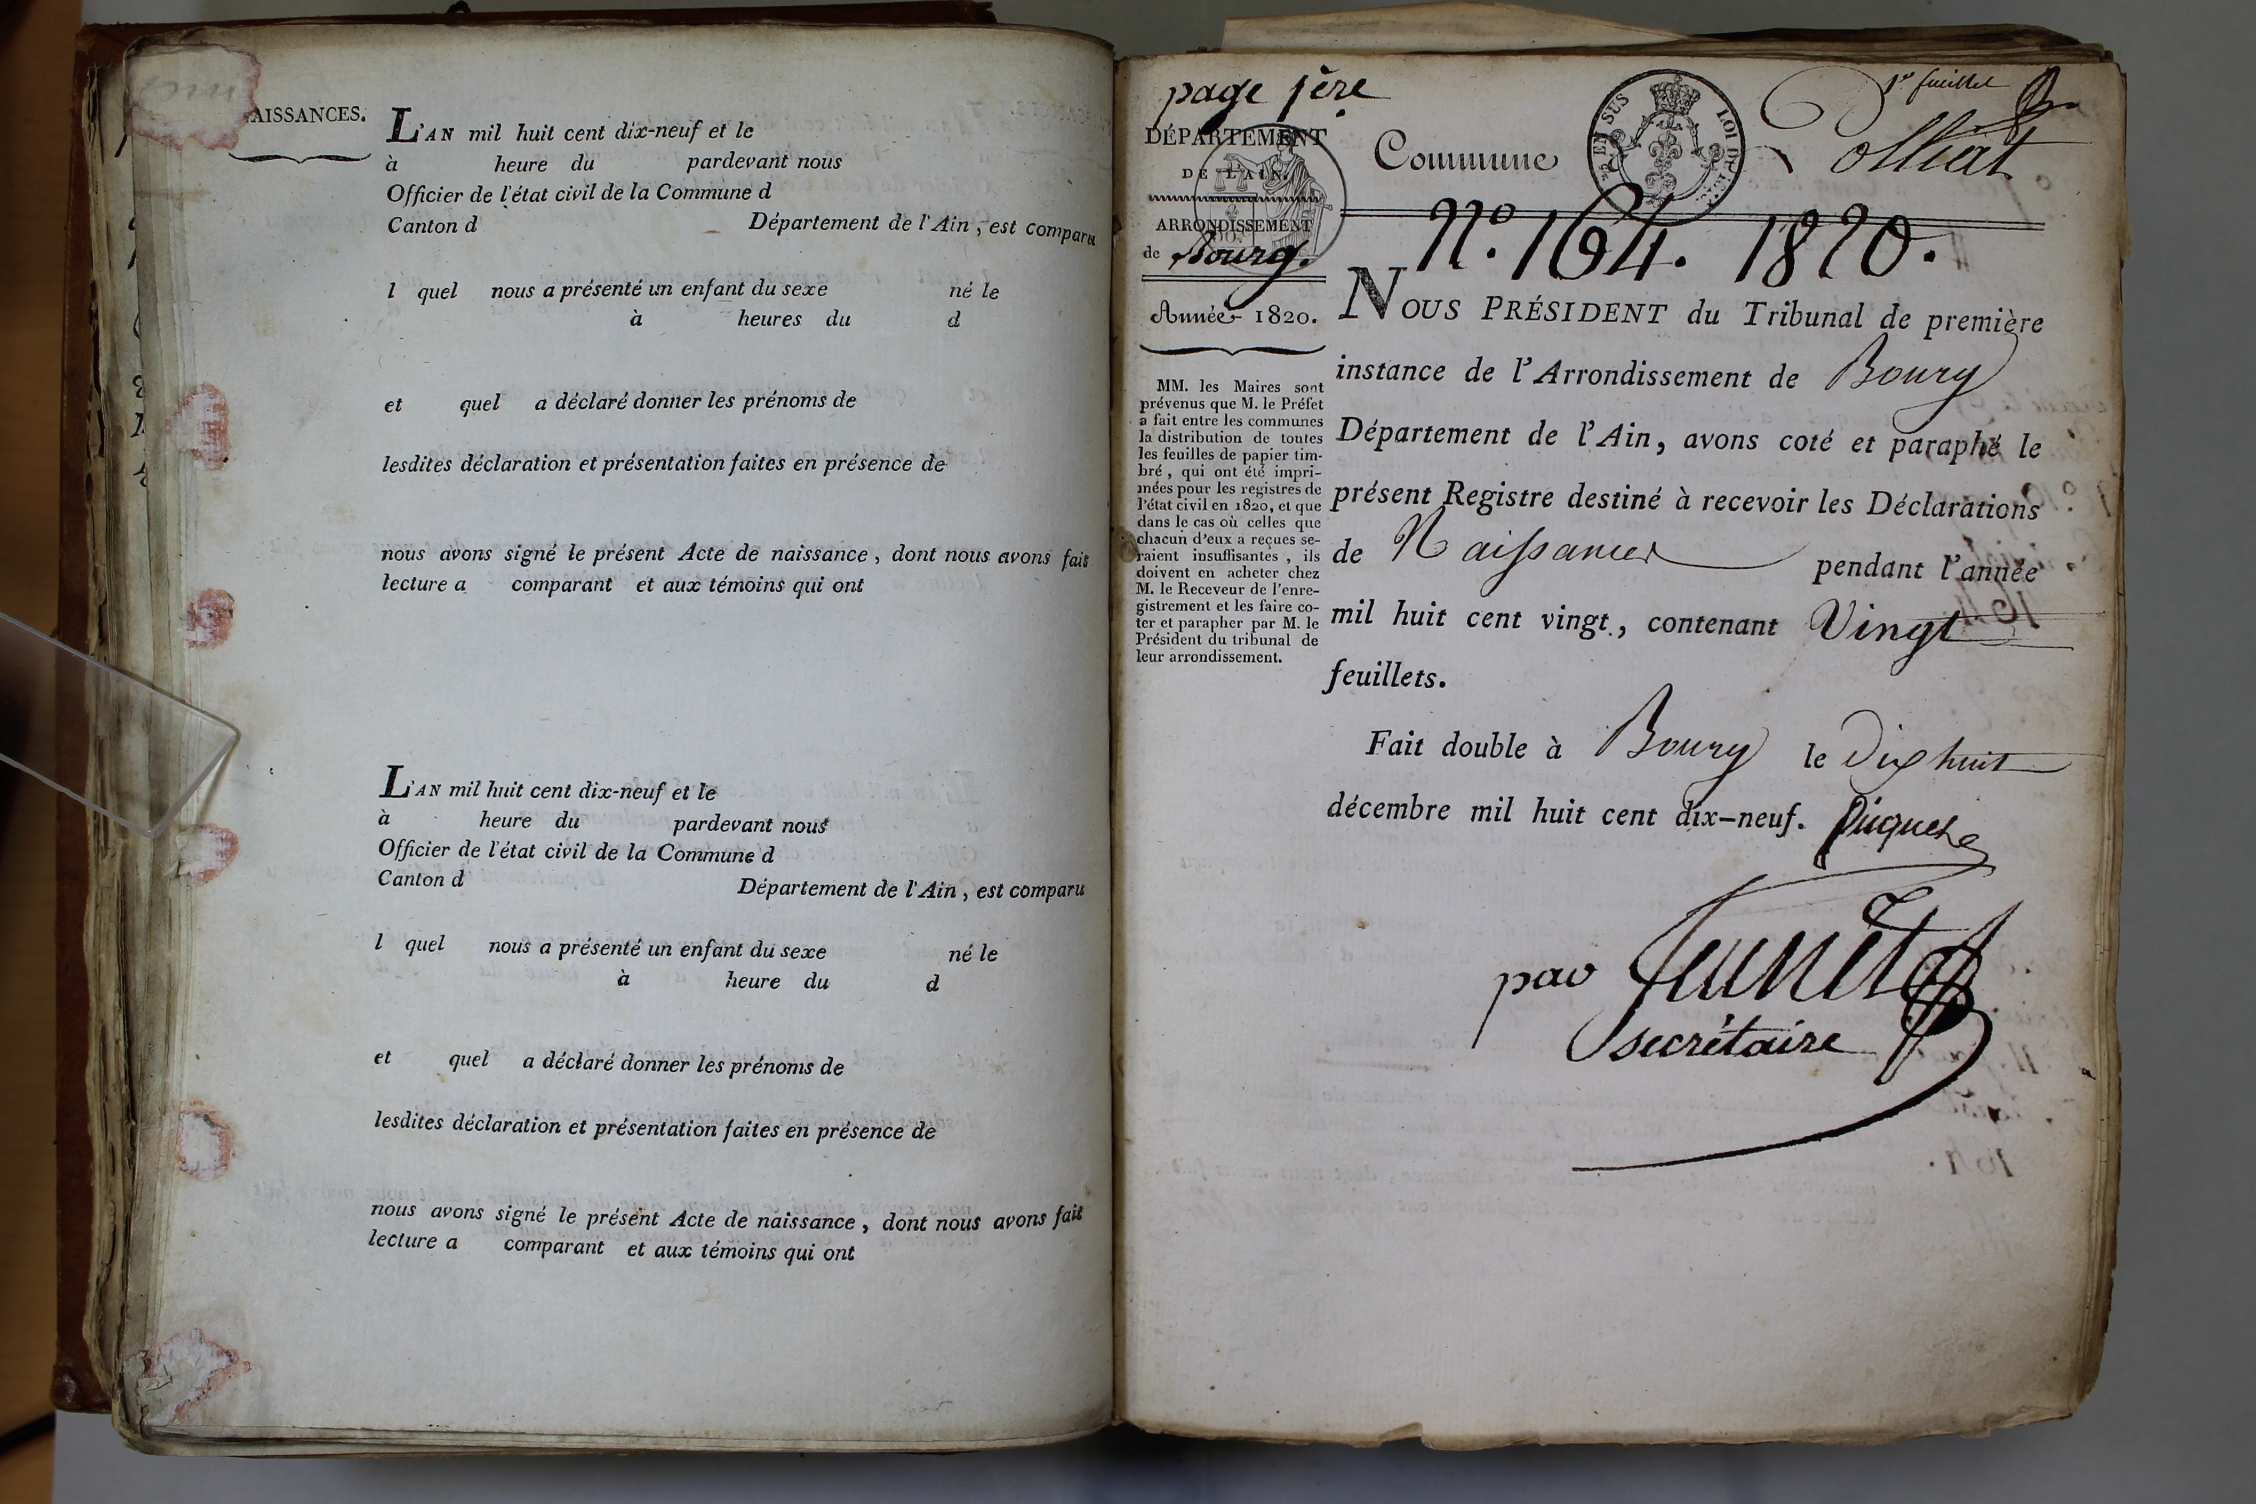 AISSANCES.
L'AN mil huit cent dix-neuf et le
à heure du pardevant nous
Officier de l'état civil de la Commune d
Canton d Département de l'Ain, est comparu
l quel nous a présenté un enfant du sexe né le
à heures du d
et quel a déclaré donner les prénoms de
lesdites déclaration et présentation faites en présence de
nous avons signé le présent Acte de naissance, dont nous avons fait
lecture a comparant et aux témoins qui ont
L'AN mil huit cent dix-neuf et le
à heure du pardevant nous
Officier de l'état civil de la Commune d
Canton d Département de l'Ain, est comparu
l quel nous a présenté un enfant du sexe né le
à heure du d
et quel a déclaré donner les prénoms de
lesdites déclaration et présentation faites en présence de
nous avons signé le présent Acte de naissance, dont nous avons fait
lecture a comparant et aux témoins qui ont
page 1ère
1er feuillet
DÉPARTEMENT
DE L'AIN.
ARRONDISSEMENT
de Bourg.
Année 1820.
MM. les Maires sont
prévenus que M. le Préfet
a fait entre les communes
la distribution de toutes
les feuilles de papier tim-
bré, qui ont été impri-
mées pour les registres de
l'état civil en 1820, et que
dans le cas où celles que
chacun d'eux a reçues se-
raient insuffisantes, ils
doivent en acheter chez
M. le Receveur de l'enre-
gistrement et les faire co-
ter et parapher par M. le
Président du tribunal de
leur arrondissement.
Commune Polliat
EN SUS LOI DE
N.º 164. 1820.
NOUS PRÉSIDENT du Tribunal de première
instance de l'Arrondissement de Bourg
Département de l'Ain, avons coté et paraphé le
présent Registre destiné à recevoir les Déclarations
de Naissances pendant l'année
mil huit cent vingt, contenant Vingt
feuillets.
Fait double à Bourg le dix huit
décembre mil huit cent dix-neuf. Piquet
par
secrétaire